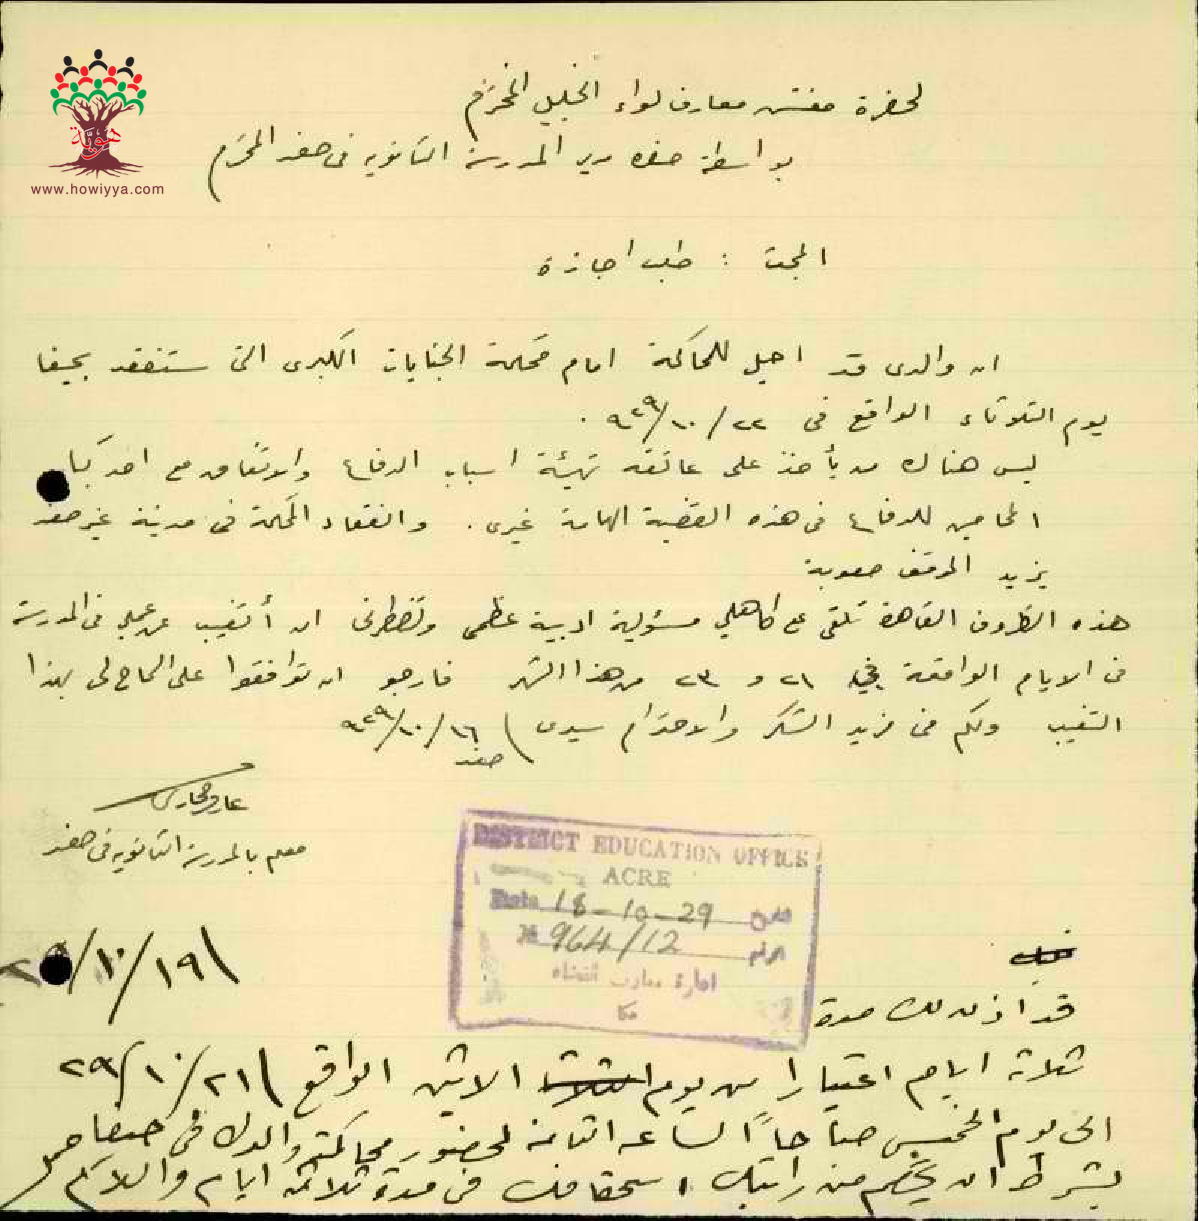 هوية
www.howiyya.com
لحضرة مفتش معارف لواء الجليل المحترم
بواسطة حضرة مدير المدرسة الثانوية في صفد المحترم
المبحث : طلب اجازة
ان والدي قد احيل للمحاكمة امام محكمة الجنايات الكبرى التي ستنعقد بحيفا
يوم الثلاثاء الواقع في ٢٢/١٠/٩٢٩ .
ليس هناك من يأخذ على عاتقه تهيئة اسباب الدفاع والاتفاق مع احد كبار
المحامين للدفاع في هذه القضية الهامة غيري . وانعقاد المحكمة في مدينة غير صفد
يزيد الموقف صعوبة
هذه الظروف القاهرة تلقي على كاهلي مسؤولية ادبية عظمى وتضطرني ان أتغيب عن عملي في المدرسة
في الايام الواقعة في ٢١ و ٢٣ من هذا الشهر فارجو ان توافقوا على السماح لي بهذا
التغيب ولكم مني مزيد الشكر والاحترام سيدي
صفد ١٦/١٠/٩٢٩
معلم بالمدرسة الثانوية في صفد
DISTRICT EDUCATION OFFICE
ACRE
Date 18-10-29 تاريخ
No 964/12 الرقم
ادارة معارف القضاء
عكا
١٩/١٠/
قد اذن لك مدة
ثلاثة ايام اعتبارا من يوم الاثنين الواقع ٢١/١٠/٢٩
الى يوم الخميس صباحاً الساعه الثامنة لحضور محاكمة والدك في حيفا
بشرط ان يخصم من راتبك استحقاقك في مدة ثلاثة ايام والسلام